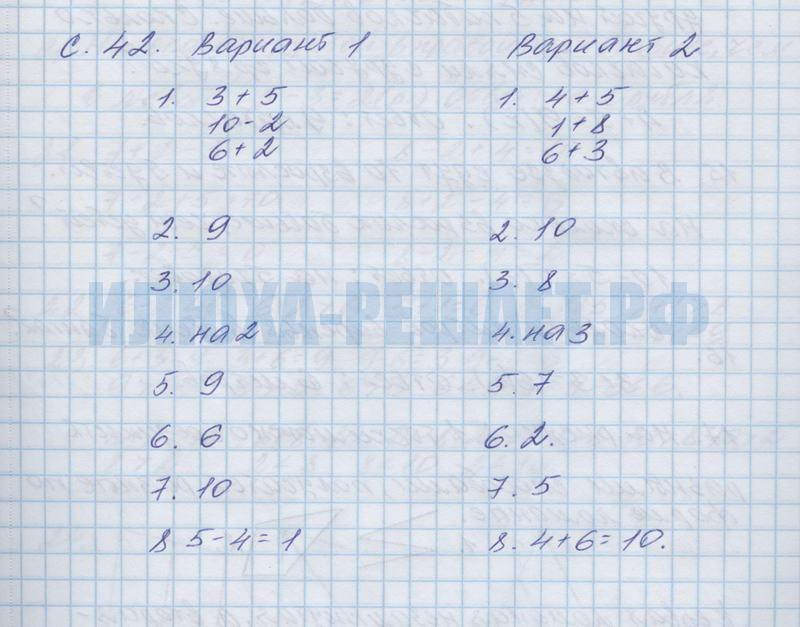 с. 42. Вариант 1 Вариант 2
1. 3 + 5 1. 4 + 5
10 - 2 1 + 8
6 + 2 6 + 3
2. 9 2. 10
3. 10 3. 8
ИЛЮХА-РЕШАЕТ.РФ
4. на 2 4. на 3
5. 9 5. 7
6. 6 6. 2.
7. 10 7. 5
8 5 - 4 = 1 8. 4 + 6 = 10.